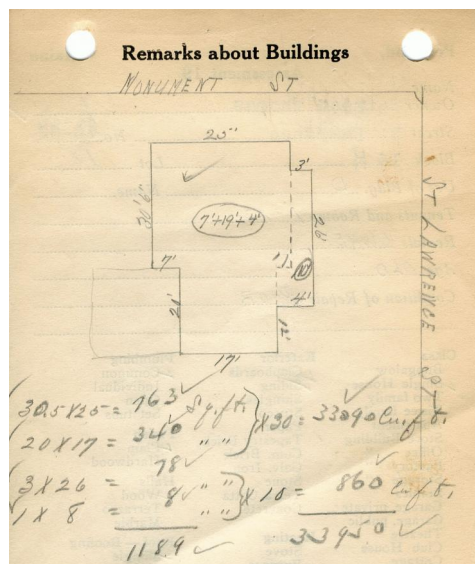 Remarks about Buildings
MONUMENT ST
25'
3'
30'6"
7'+19'+4'
26'
ST LAWRENCE ST
7'
1'
10
4'
21'
12'
17'
30.5 X 25 = 763 Sq.ft.
20 X 17 = 340 " " X 30 = 33090 Cu.ft.
3 X 26 = 78 " "
1 X 8 = 8 " " X 10 = 860 Cu.ft.
1189 33950